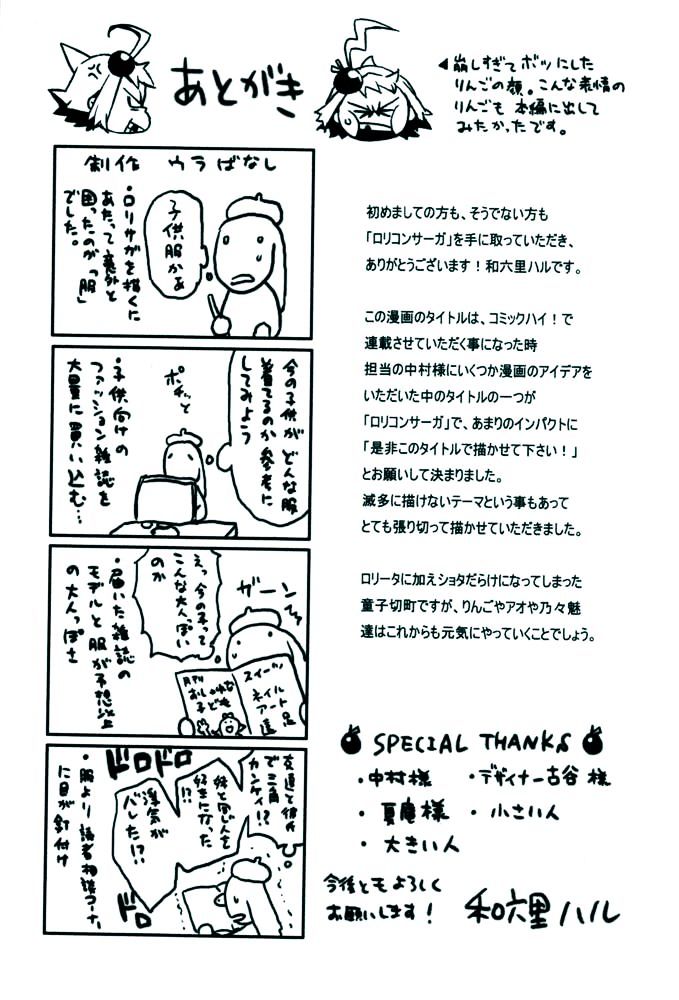 あとがき
◀崩しすぎてボツにした
りんごの顔。こんな表情の
りんごも本編に出して
みたかったです。
制作 ウラばなし
・ロリサガを描くに
あたって意外と
困ったのが「服」
でした。
子供服かぁ
今の子供がどんな服
着てるのか参考に
してみよう
ポチッと
・子供向けの
ファッション雑誌を
大量に買い込む…
ガーン
えっ今の子って
こんな大人っぽい
のか
・届いた雑誌の
モデルと服が予想以上
の大人っぽさ
月刊
おしゃれな
子ども
スイーツ
ネイル
アート
友達と彼氏
で三角
カンケイ!?
妹と同じ人を
好きになった
!?
浮気が
バレした!?
ドロドロ
ドロ
・服より読者相談コーナー
に目が釘付け
初めましての方も、そうでない方も
「ロリコンサーガ」を手に取っていただき、
ありがとうございます!和六里ハルです。
この漫画のタイトルは、コミックハイ!で
連載させていただく事になった時
担当の中村様にいくつか漫画のアイデアを
いただいた中のタイトルの一つが
「ロリコンサーガ」で、あまりのインパクトに
「是非このタイトルで描かせて下さい!」
とお願いして決まりました。
滅多に描けないテーマという事もあって
とても張り切って描かせていただきました。
ロリータに加えショタだらけになってしまった
童子切町ですが、りんごやアオや乃々魅
達はこれからも元気にやっていくことでしょう。
SPECIAL THANKS
・中村様 ・デザイナー古谷様
・夏庵様 ・小さい人
・大きい人
今後ともよろしく
お願いします! 和六里ハル